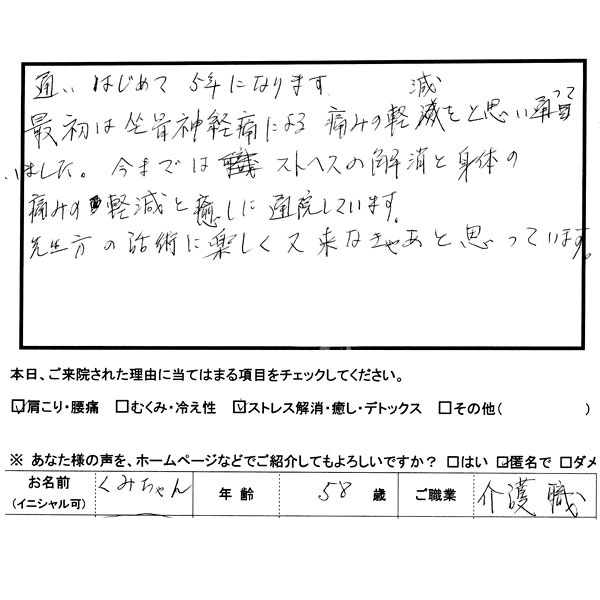 通いはじめて 5年になります。
最初は坐骨神経痛による 痛みの軽減をと思い通って
いました。今までは ストレスの解消と身体の
痛みの軽減と癒しに通院しています。
先生方の話術に楽しく又来なきゃあと思っています。
本日、ご来院された理由に当てはまる項目をチェックしてください。
☑肩こり・腰痛 □むくみ・冷え性 ☑ストレス解消・癒し・デトックス □その他( )
※ あなた様の声を、ホームページなどでご紹介してもよろしいですか? □はい ☑匿名で □ダメ
お名前 (イニシャル可) くみちゃん 年齢 58 歳 ご職業 介護職